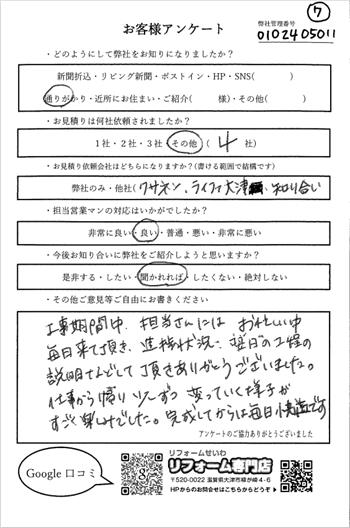 ⑦
お客様アンケート
弊社管理番号
0102405011
・どのようにして弊社をお知りになりましたか？
新聞折込・リビング新聞・ポストイン・HP・SNS(　　　)
通りがかり・近所にお住まい・ご紹介(　　　様)・その他(　　　)
・お見積りは何社依頼されましたか？
1社・2社・3社・その他 ( 4 社)
・お見積り依頼会社はどちらになりますか？(書ける範囲で結構です)
弊社のみ・他社(ワサネン、ライファ大津、知り合い
・担当営業マンの対応はいかがでしたか？
非常に良い・良い・普通・悪い・非常に悪い
・今後お知り合いに弊社をご紹介しようと思いますか？
是非する・したい・聞かれれば・したくない・絶対しない
・その他ご意見等ご自由にお書きください
工事期間中、担当さんには お忙しい中
毎日来て頂き、進捗状況、翌日の工程の
説明などして頂きありがとうございました。
仕事から帰り 少しずつ 変っていく様子が
すごく楽しみでした。完成してからは毎日快適です
アンケートのご協力ありがとうございました
Google 口コミ
リフォームせいわ
リフォーム専門店
〒520-0022 滋賀県大津市柳が崎4-6
HPからのお問合せはこちらからどうぞ